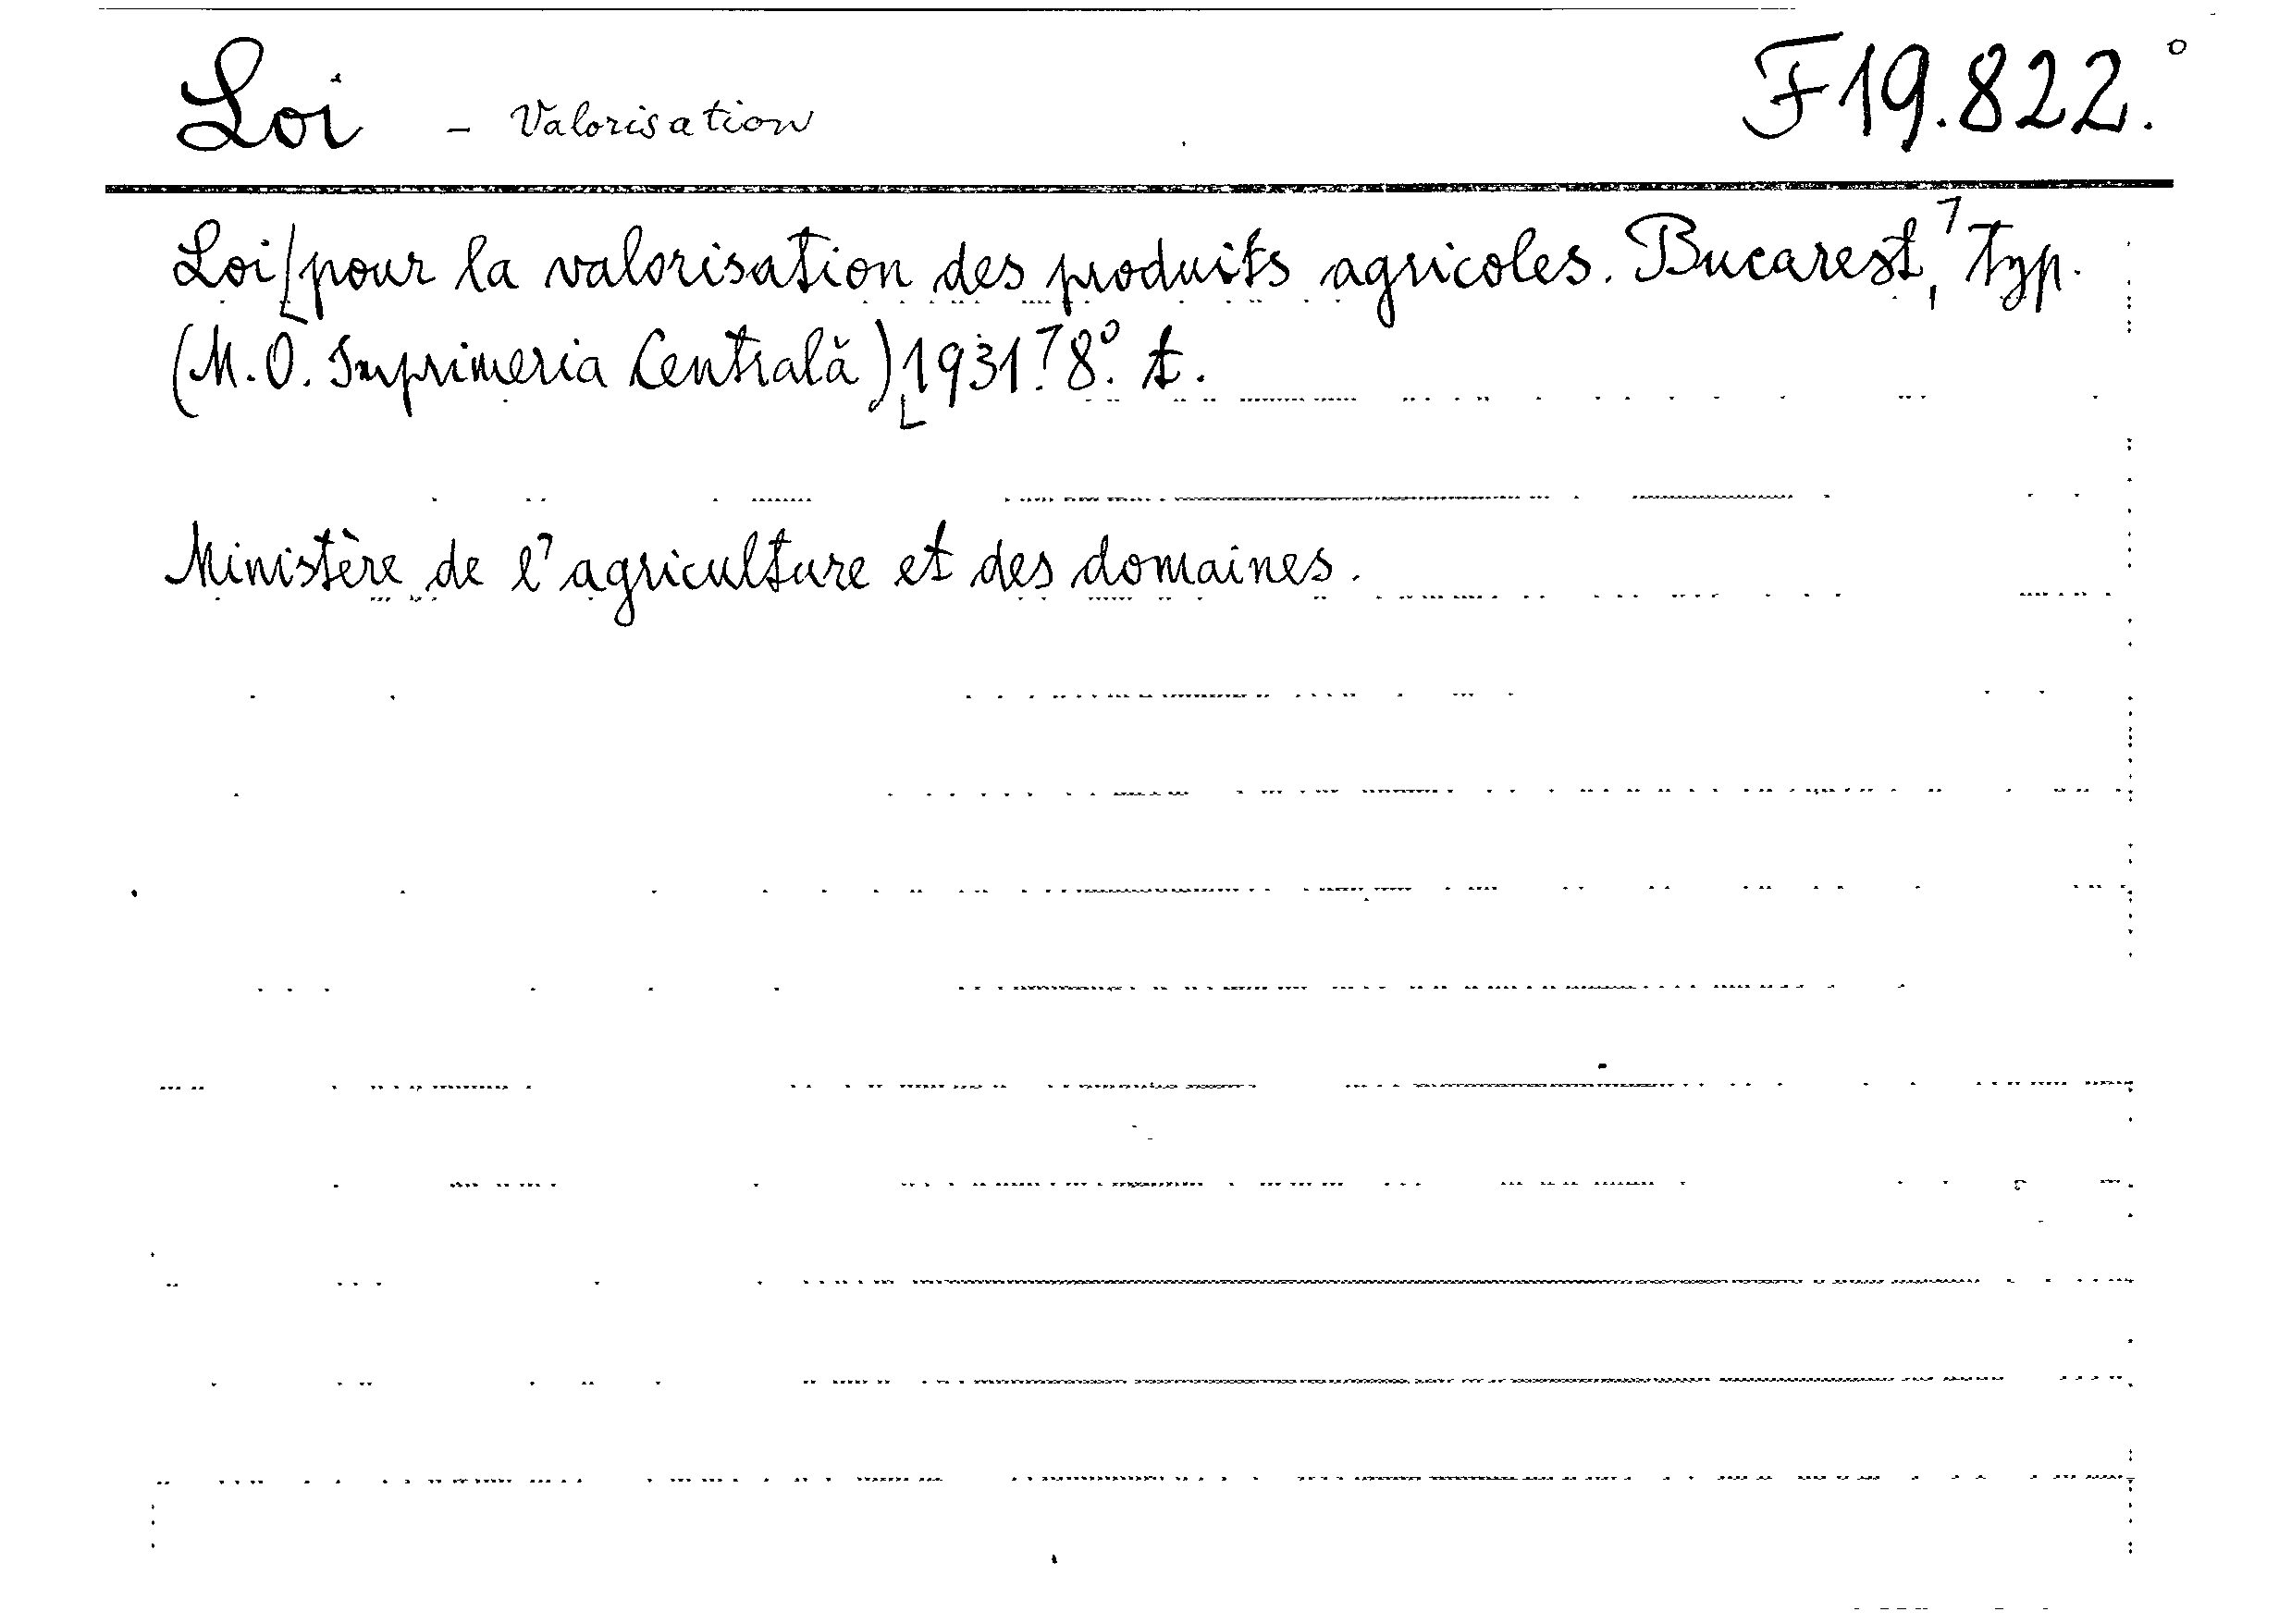 Loi - Valorisation F19.822.°
Loi [pour la valorisation des produits agricoles. Bucarest,] Typ.
(M. O. Imprimeria Centrală) [1931.] 8°. t.
Ministère de l'agriculture et des domaines.